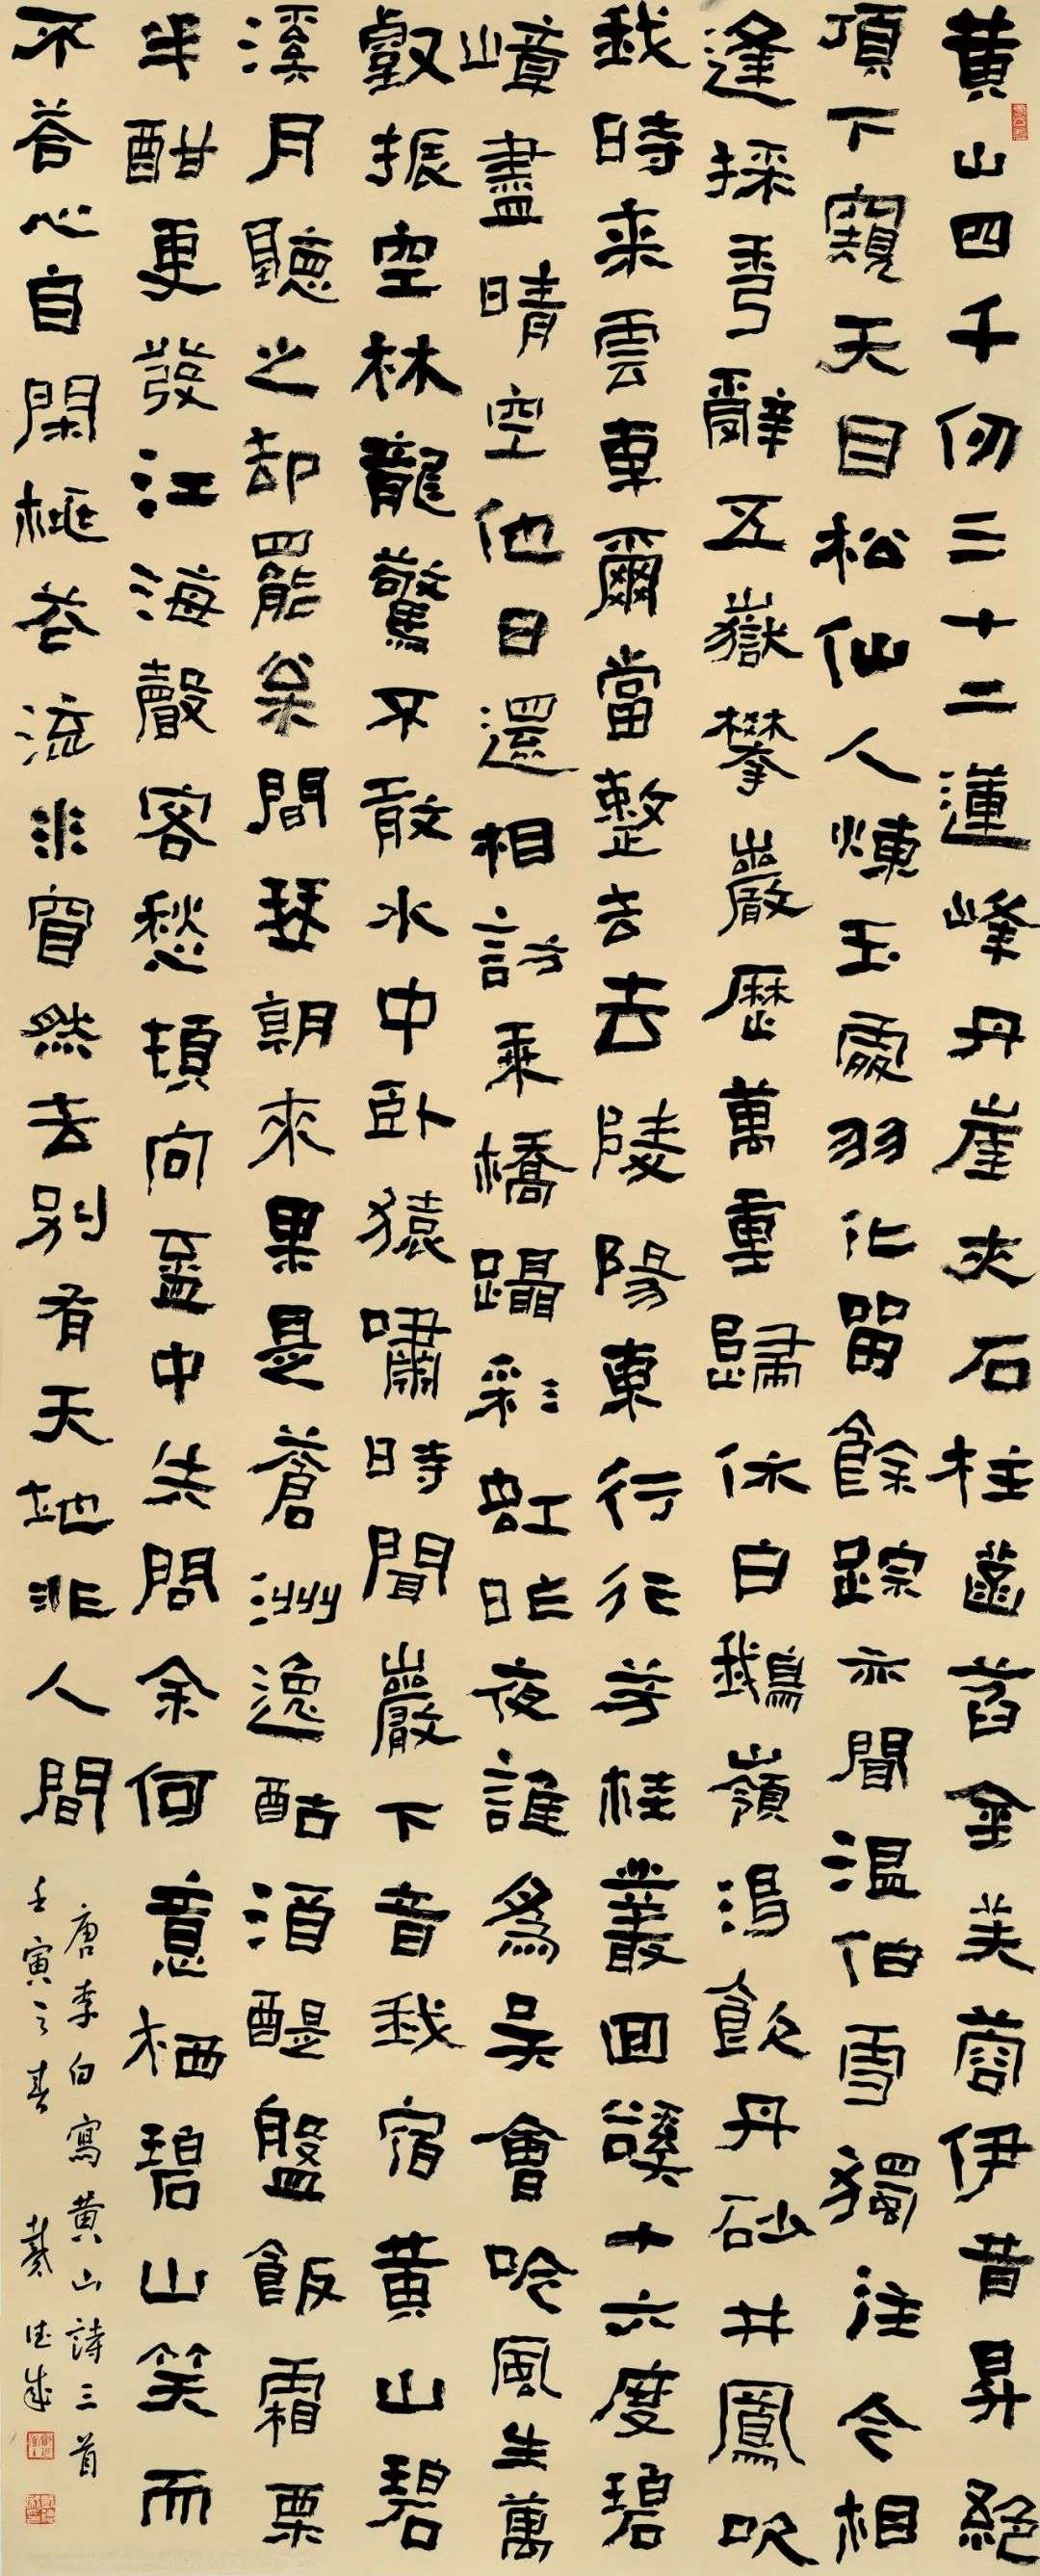 黄山四千仞三十二蓮峰丹崖夾石柱菡萏金芙蓉伊昔昇絕
頂下窺天目松仙人煉玉處羽化留餘踪亦聞温伯雪獨往今相
逢採秀辭五嶽攀巖歷萬重歸休白鵝嶺渴飲丹砂井鳳吹
我時來雲車爾當整去去陵陽東行行芳桂叢回谿十六度碧
嶂盡晴空他日還相訪乘橋躡彩虹昨夜誰爲吳會吟風生萬
壑振空林龍驚不敢水中卧猿嘯時聞巖下音我宿黄山碧
溪月聽之却罷枀間琴朝來果是蒼洲逸酤酒醍盤飯霜栗
半酣更發江海聲客愁頓向盃中失問余何意栖碧山笑而
不荅心自閑桃花流水窅然去別有天地非人間
唐李白寫黄山詩三首
壬寅之春